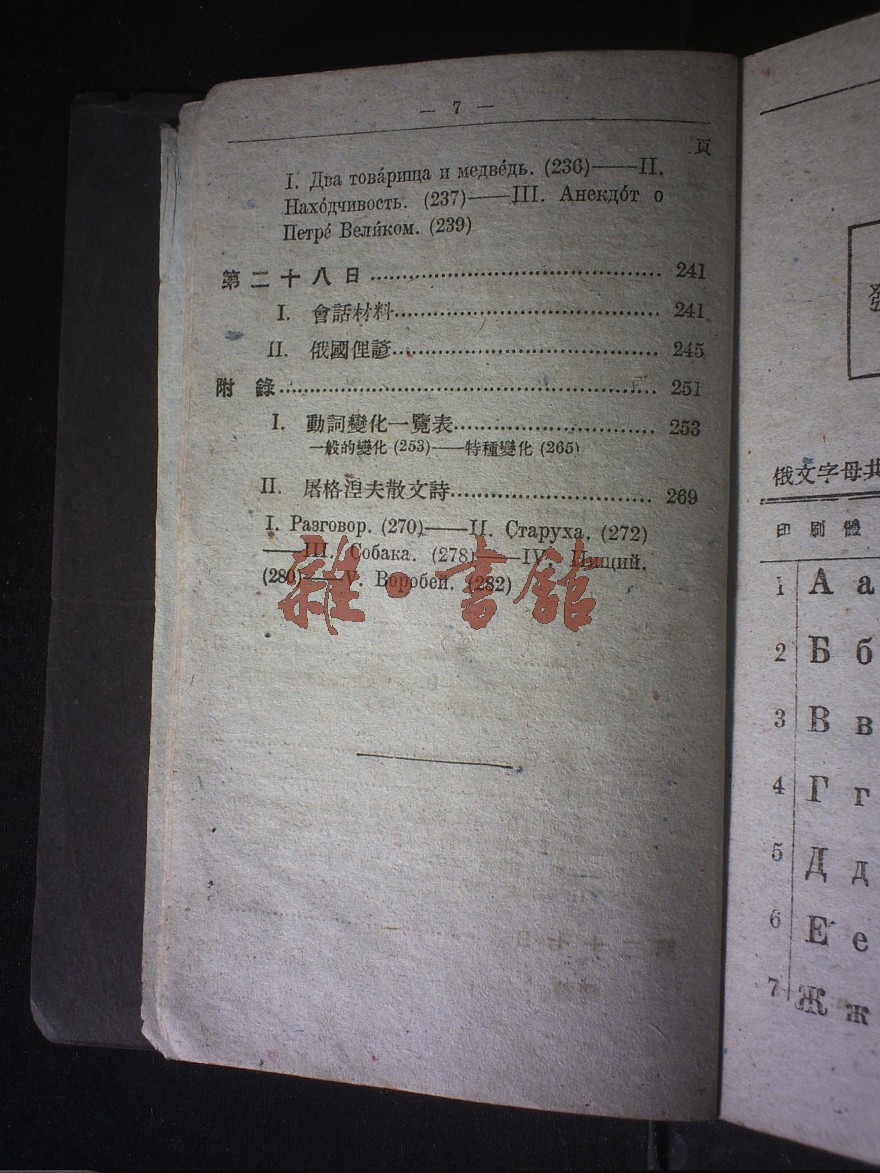 — 7 —
頁
I. Два това́рища и медве́дь. (236)——II.
Нахо́дчивость. (237)——III. Анекдо́т о
Петре́ Вели́ком. (239)
第二十八日 241
I. 會話材料 241
II. 俄國俚諺 245
附錄 251
I. 動詞變化一覽表 253
一般的變化 (253)——特種變化 (265)
II. 屠格涅夫散文詩 269
I. Разговор. (270)——II. Старуха. (272)
——III. Собака. (278)——IV. Нищий.
(280)——V. Воробей. (282)
雜·書館
俄文字母共
印刷體
1 А а
2 Б б
3 В в
4 Г г
5 Д д
6 Е е
7 Ж ж